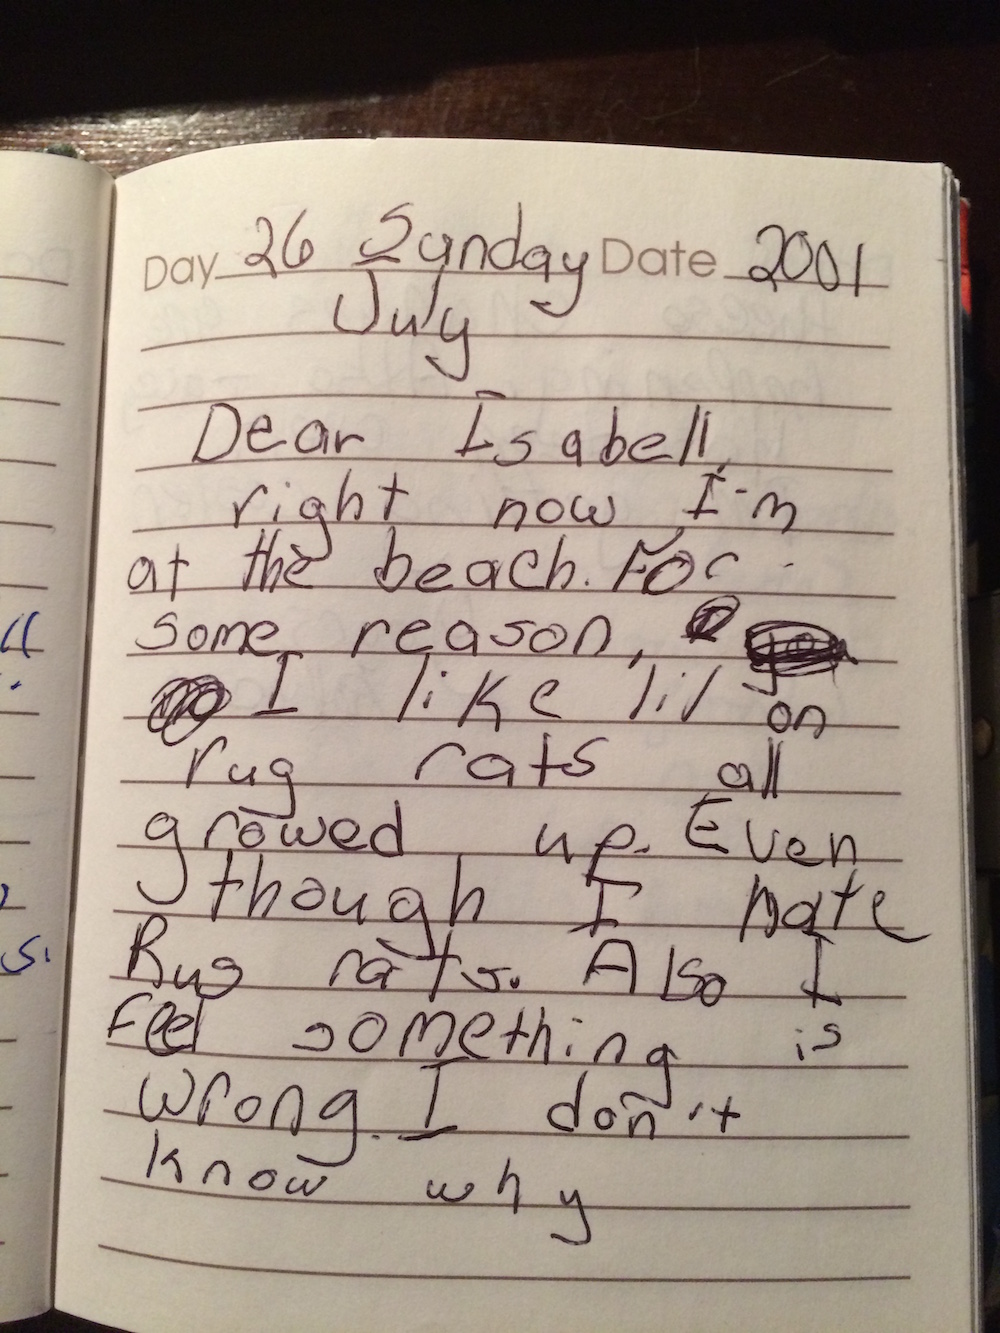 Day 26 Sunday Date 2001
July
Dear Isabell,
right now I'm
at the beach. For
some reason,
I like lil on
rug rats all
growed up. Even
though I hate
Rug rats. Also I
feel something is
wrong. I don't
know why